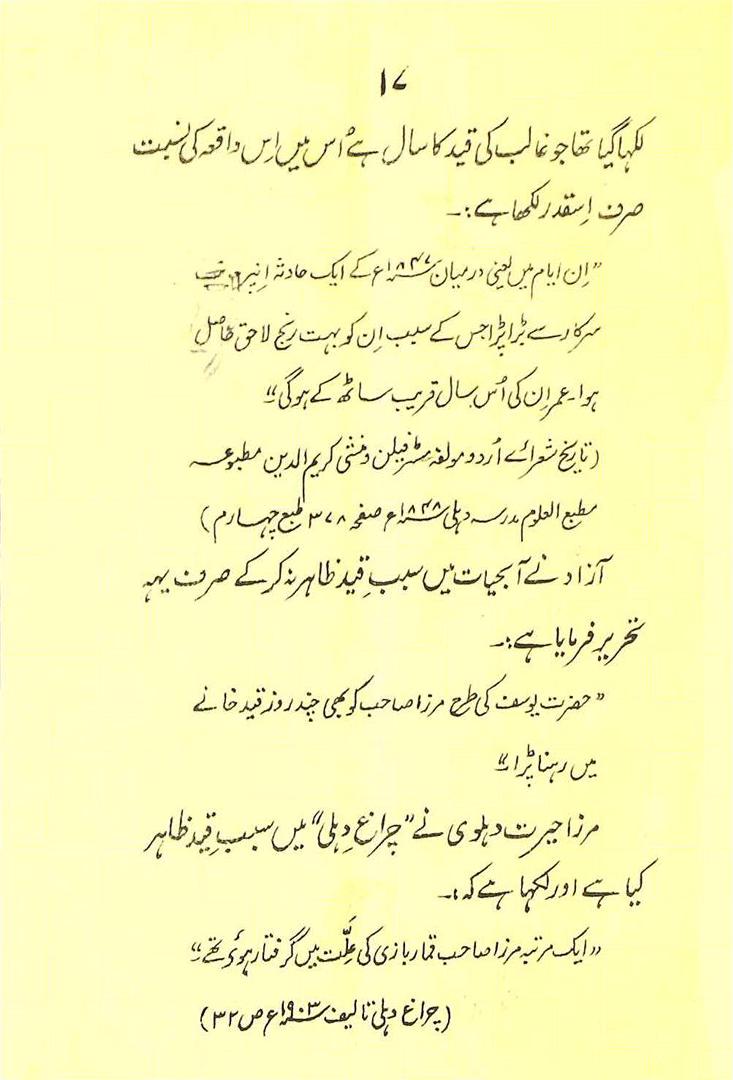 ۱۷
لکھا گیا تھا جو غالب کی قید کا سال ہے اُس میں اِس واقعہ کی نسبت
صرف اِسقدر لکھا ہے :۔
"اِن ایام میں یعنی درمیان ۱۸۴۷ء کے ایک حادثہ اِنپر
سرکار سے بڑا پڑا جس کے سبب اِن کو بہت رنج لاحق حاصل
ہوا۔ عمر اِن کی اُس سال قریب ساٹھ کے ہوگی"
(تاریخ شعرائے اُردو مولفہ مسٹر فیلن و منشی کریم الدین مطبوعہ
مطبع العلوم مدرسہ دہلی ۱۸۴۸ء صفحہ ۳۷۸ طبع چہارم)
آزاد نے آبحیات میں سببِ قید ظاہر نہ کرکے صرف یہہ
تحریر فرمایا ہے :۔
"حضرت یوسف کی طرح مرزا صاحب کو بھی چند روز قید خانے
میں رہنا پڑا"
مرزا حیرت دہلوی نے "چراغِ دہلی" میں سببِ قید ظاہر
کیا ہے اور لکھا ہے کہ :۔
"ایک مرتبہ مرزا صاحب قمار بازی کی عِلَّت میں گرفتار ہوئے تھے"
(چراغ دہلی تالیف ۱۹۰۳ء ص ۳۲)